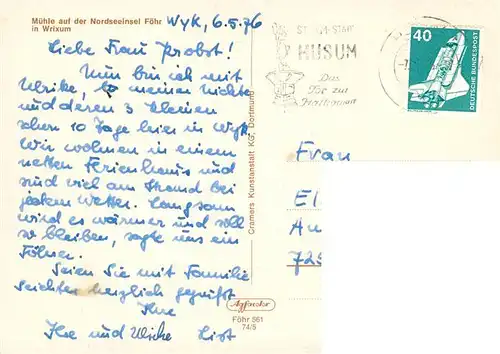 Mühle auf der Nordseeinsel Föhr
in Wrixum
Wyk, 6.5.76
Liebe Frau Probst!
Nun bin ich mit
Ulrike, meiner Nichte
und deren 3 kleinen
schon 10 Tage hier in Wyk.
Wir wohnen in einem
netten Ferienhaus und
sind viel am Strand bei
jedem Wetter. Langsam
wird es wärmer und soll
so bleiben, sagte uns ein
Föhrer.
Seien Sie mit Familie
herzlich gegrüßt
Ihre
und
Cramers Kunstanstalt KG, Dortmund
Föhr 561
74/5
HUSUM
Das
Tor zur
40
DEUTSCHE BUNDESPOST
Frau
El
An
725